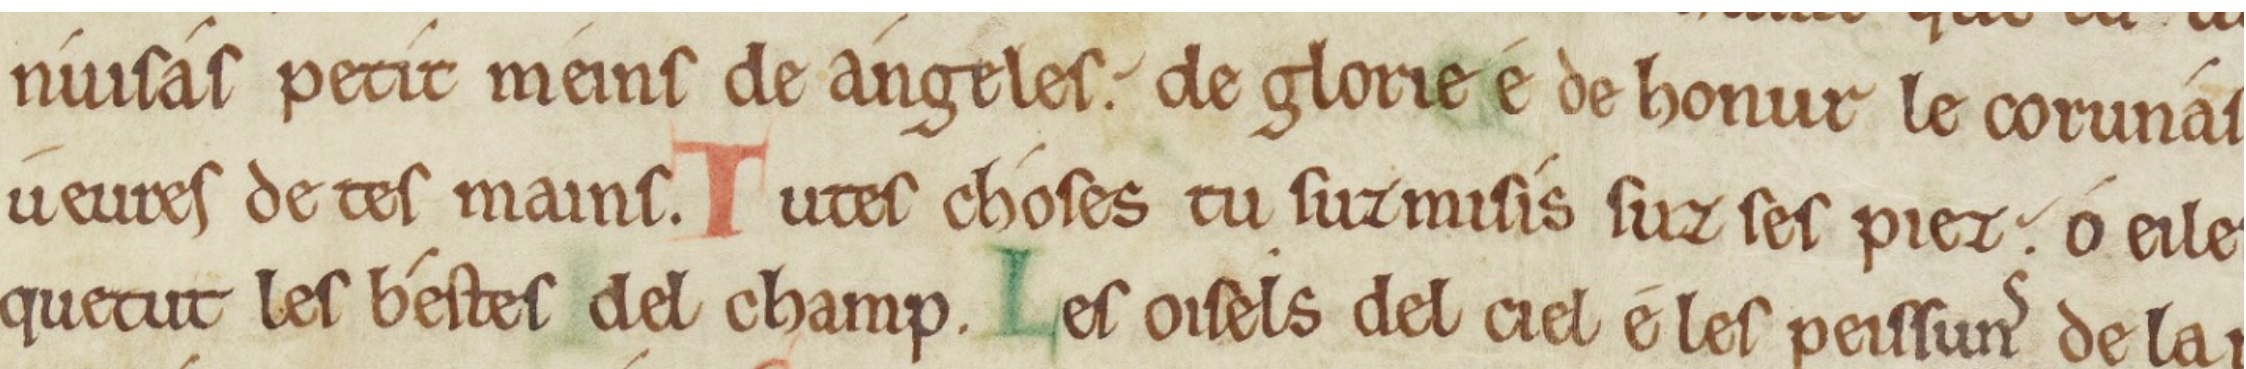 niuisas petit meins de angeles. de glorie é de honur le corunas
ueures de tes mains. Tutes choses tu surmisis sur ses piez. o eile
quetut les bestes del champ. Les oisels del ciel e les peissuns de la